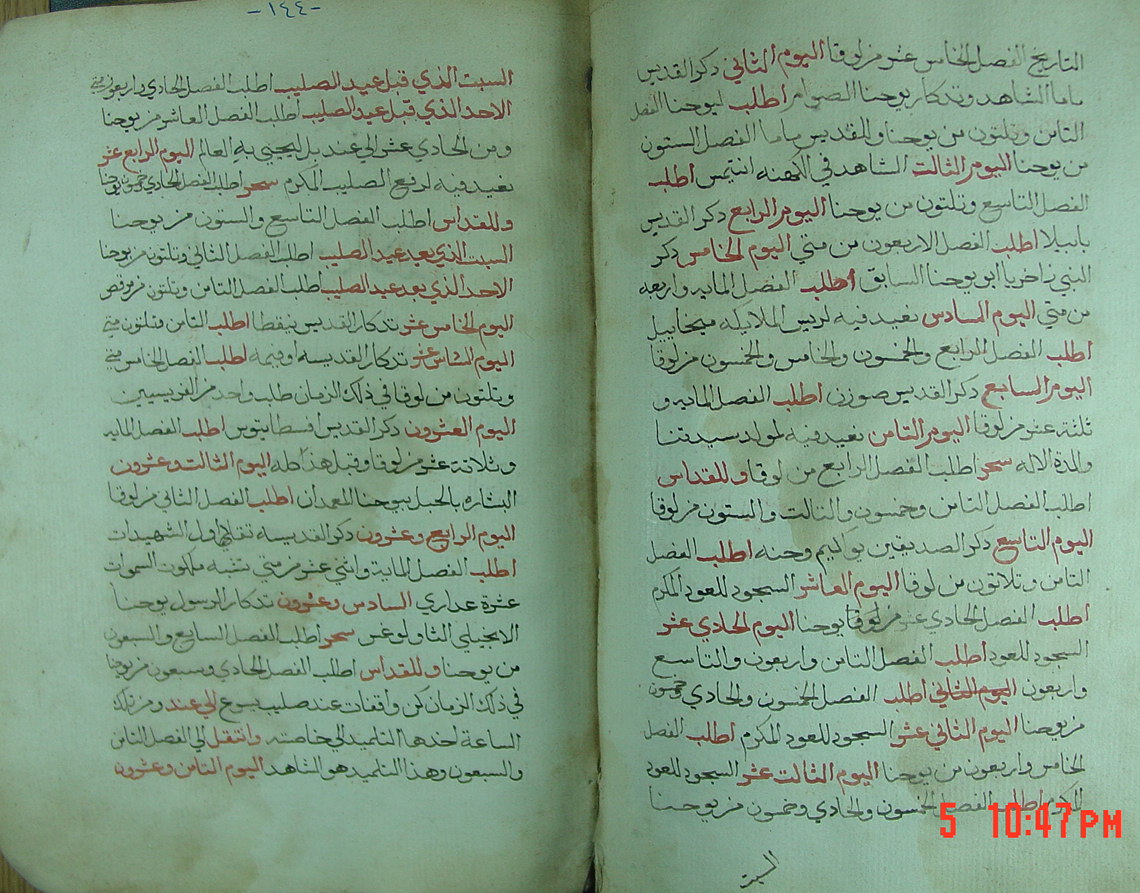 التاريخ الفصل الخامس عشر من لوقا اليوم الثاني ذكر القديس
ماما الشاهد وتدكار يوحنا الصوام اطلب ليوحنا الفصل
الثامن وتلتون من يوحنا وللمقديس ماما الفصل الستون
من يوحنا اليوم الثالت الشاهد في الكهنه انتيمس اطلب
الفصل التاسع وتلتون من يوحنا اليوم الرابع ذكر القديس
بابيلا اطلب الفصل الاربعون من متي اليوم الخامس ذكر
النبي زاخريا ابو يوحنا السابق اطلب الفصل المايه واربعه
من متي اليوم السادس نعيد فيه لريس الملايكه ميخاييل
اطلب الفصل الرابع والخمسون والخامس والخمسون من لوقا
اليوم السابع ذكر القديس صوزن اطلب الفصل المايه و
ثلثة عشر من لوقا اليوم التامن نعيد فيه لمولد سيدتنا
والدة الاله سحر اطلب الفصل الرابع من لوقا وللقداس
اطلب الفصل التامن وخمسون والتالت والستون من لوقا
اليوم التاسع ذكر الصديقين يواكيم وحنه اطلب الفصل
التامن وتلاتون من لوقا اليوم العاشر السجود للعود المكرم
اطلب الفصل الحادي عشر من يوحنا اليوم الحادي عشر
السجود للعود اطلب الفصل التامن واربعون والتاسع
واربعون اليوم الثاني اطلب الفصل الخمسون والحادي وخمسون
من يوحنا اليوم الثاني عشر السجود للعود المكرم اطلب الفصل
الخامس واربعون من يوحنا اليوم التالت عشر السجود للعود
المكرم اطلب الفصل الخمسون والحادي وخمسون من يوحنا
السبت
5 10:47PM
-١٤٤-
السبت الذي قبل عيد الصليب اطلب الفصل الحادي واربعون متي
الاحد الذي قبل عيد الصليب اطلب الفصل العاشر من يوحنا
ومن الحادي عشر الي عند بل ليحيي به العالم اليوم الرابع عشر
نعيد فيه لرفع الصليب المكرم سحر اطلب الفصل الحادي خمسون يوحنا
وللقداس اطلب الفصل التاسع والستون من يوحنا
السبت الذي بعد عيد الصليب اطلب الفصل الثاني وتلتون من يوحنا
الاحد الذي بعد عيد الصليب اطلب الفصل التامن وتلتون من مرقص
اليوم الخامس عشر تدكار القديس نيقيطا اطلب التامن وتلتون متي
اليوم السادس عشر تدكار القديسه اوفيمه اطلب الفصل الخامس متي
وتلتون من لوقا في ذلك الزمان طلب واحد من الفريسيين
اليوم العشرون ذكر القديس افسطاتيوس اطلب الفصل المايه
وثلاثة عشر من لوقا وقبل هذا كله اليوم التالت وعشرون
البشاره بالحبل بيوحنا المعمدان اطلب الفصل الثاني من لوقا
اليوم الرابع وعشرون ذكر القديسه تقلا اول الشهيدات
اطلب الفصل المايه واتني عشر من متي تشبه ملكوت السموات
عشرة عداري السادس وعشرون تدكار الرسول يوحنا
الانجيلي التاولوغس سحر اطلب الفصل السابع والسبعون
من يوحنا وللقداس اطلب الفصل الحادي وسبعون من يوحنا
في ذلك الزمان كن واقفات عند صليب يسوع الي عند ومن تلك
الساعة اخدها التلميد الي خاصته وانتقل الي الفصل التامن
والسبعون وهذا التلميد هو الشاهد اليوم التامن وعشرون